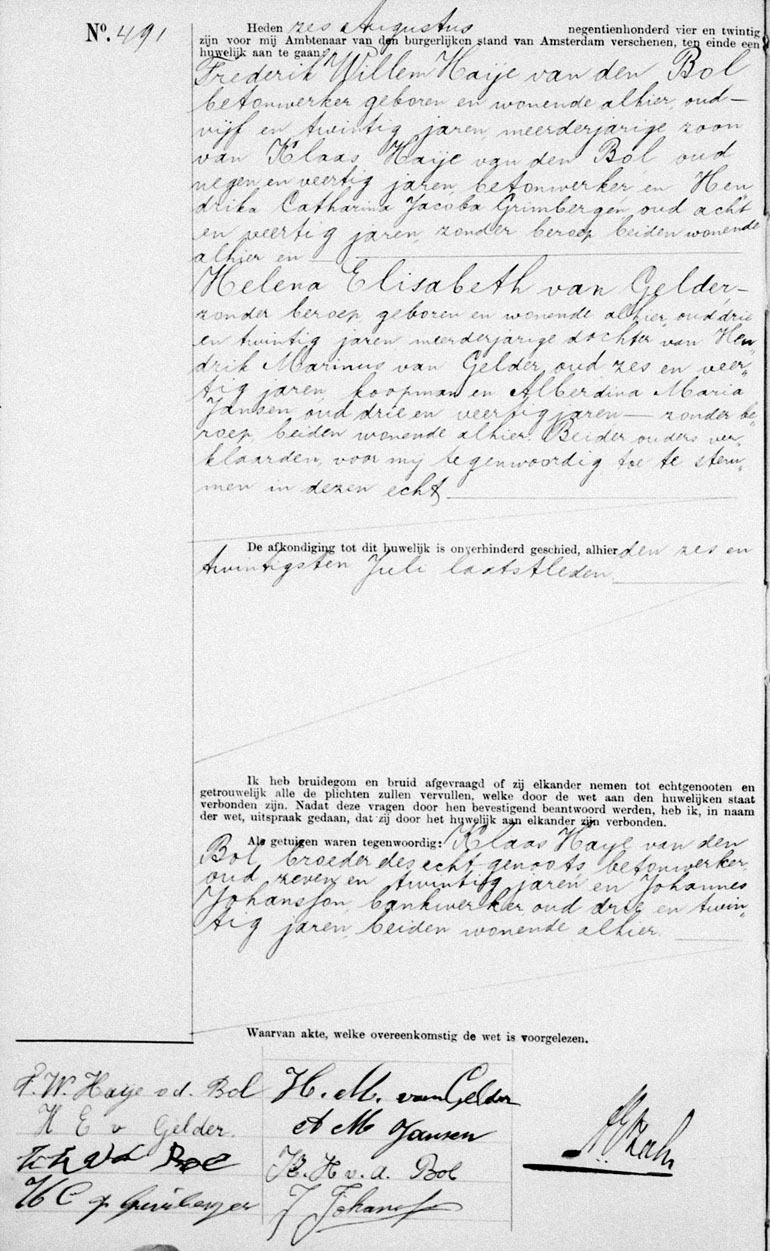 No. 491
Heden zes Augustus negentienhonderd vier en twintig
zijn voor mij Ambtenaar van den burgerlijken stand van Amsterdam verschenen, ten einde een
huwelijk aan te gaan:
Frederik Willem Haije van den Bol
betonwerker geboren en wonende alhier, oud —
vijf en twintig jaren, meerderjarige zoon
van Klaas Haije van den Bol oud
negen en veertig jaren, betonwerker en Hen„
drika Catharina Jacoba Grimbergen, oud acht
en veertig jaren, zonder beroep, beiden wonende
alhier en
Helena Elisabeth van Gelder —
zonder beroep geboren en wonende alhier, oud drie
en twintig jaren meerderjarige dochter van Hen„
drik Marinus van Gelder, oud zes en veer„
tig jaren, koopman en Alberdina Maria
Jansen, oud drie en veertig jaren — zonder be„
roep, beiden wonende alhier. Beider ouders ver„
klaarden, voor mij tegenwoordig toe te stem„
men in dezen echt
De afkondiging tot dit huwelijk is onverhinderd geschied, alhier den zes en
twintigsten Juli laatstleden
Ik heb bruidegom en bruid afgevraagd of zij elkander nemen tot echtgenooten en
getrouwelijk alle de plichten zullen vervullen, welke door de wet aan den huwelijken staat
verbonden zijn. Nadat deze vragen door hen bevestigend beantwoord werden, heb ik, in naam
der wet, uitspraak gedaan, dat zij door het huwelijk aan elkander zijn verbonden.
Als getuigen waren tegenwoordig: Klaas Haije van den
Bol, broeder des echtgenoots, betonwerker,
oud zeven en twintig jaren en Johannes
Johansson, bankwerker, oud drie en twin„
tig jaren, beiden wonende alhier.
Waarvan akte, welke overeenkomstig de wet is voorgelezen.
F. W. Haije v d. Bol
H E v Gelder.
Bol
H C J Grimbergen
H. M. van Gelder
A M Jansen
K. H v. d. Bol
J Johansson